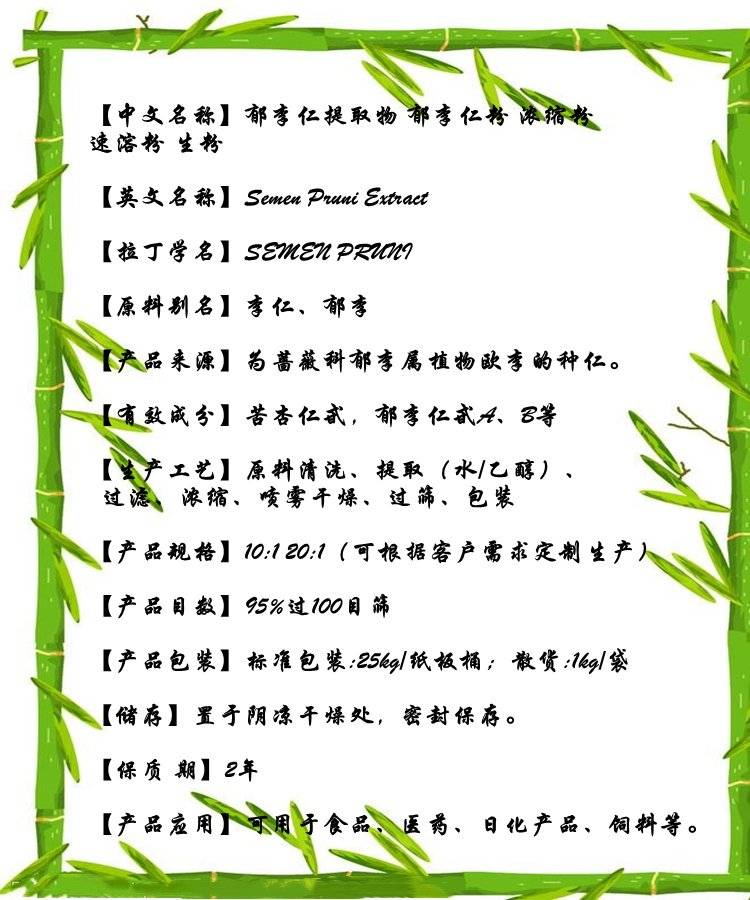 【中文名称】郁李仁提取物 郁李仁粉 浓缩粉
速溶粉 生粉
【英文名称】Semen Pruni Extract
【拉丁学名】SEMEN PRUNI
【原料别名】李仁、郁李
【产品来源】为蔷薇科郁李属植物欧李的种仁。
【有效成分】苦杏仁甙，郁李仁甙A、B等
【生产工艺】原料清洗、提取（水/乙醇）、
过滤、浓缩、喷雾干燥、过筛、包装
【产品规格】10:1 20:1（可根据客户需求定制生产）
【产品目数】95%过100目筛
【产品包装】标准包装:25kg/纸板桶；散货:1kg/袋
【储存】置于阴凉干燥处，密封保存。
【保质 期】2年
【产品应用】可用于食品、医药、日化产品、饲料等。